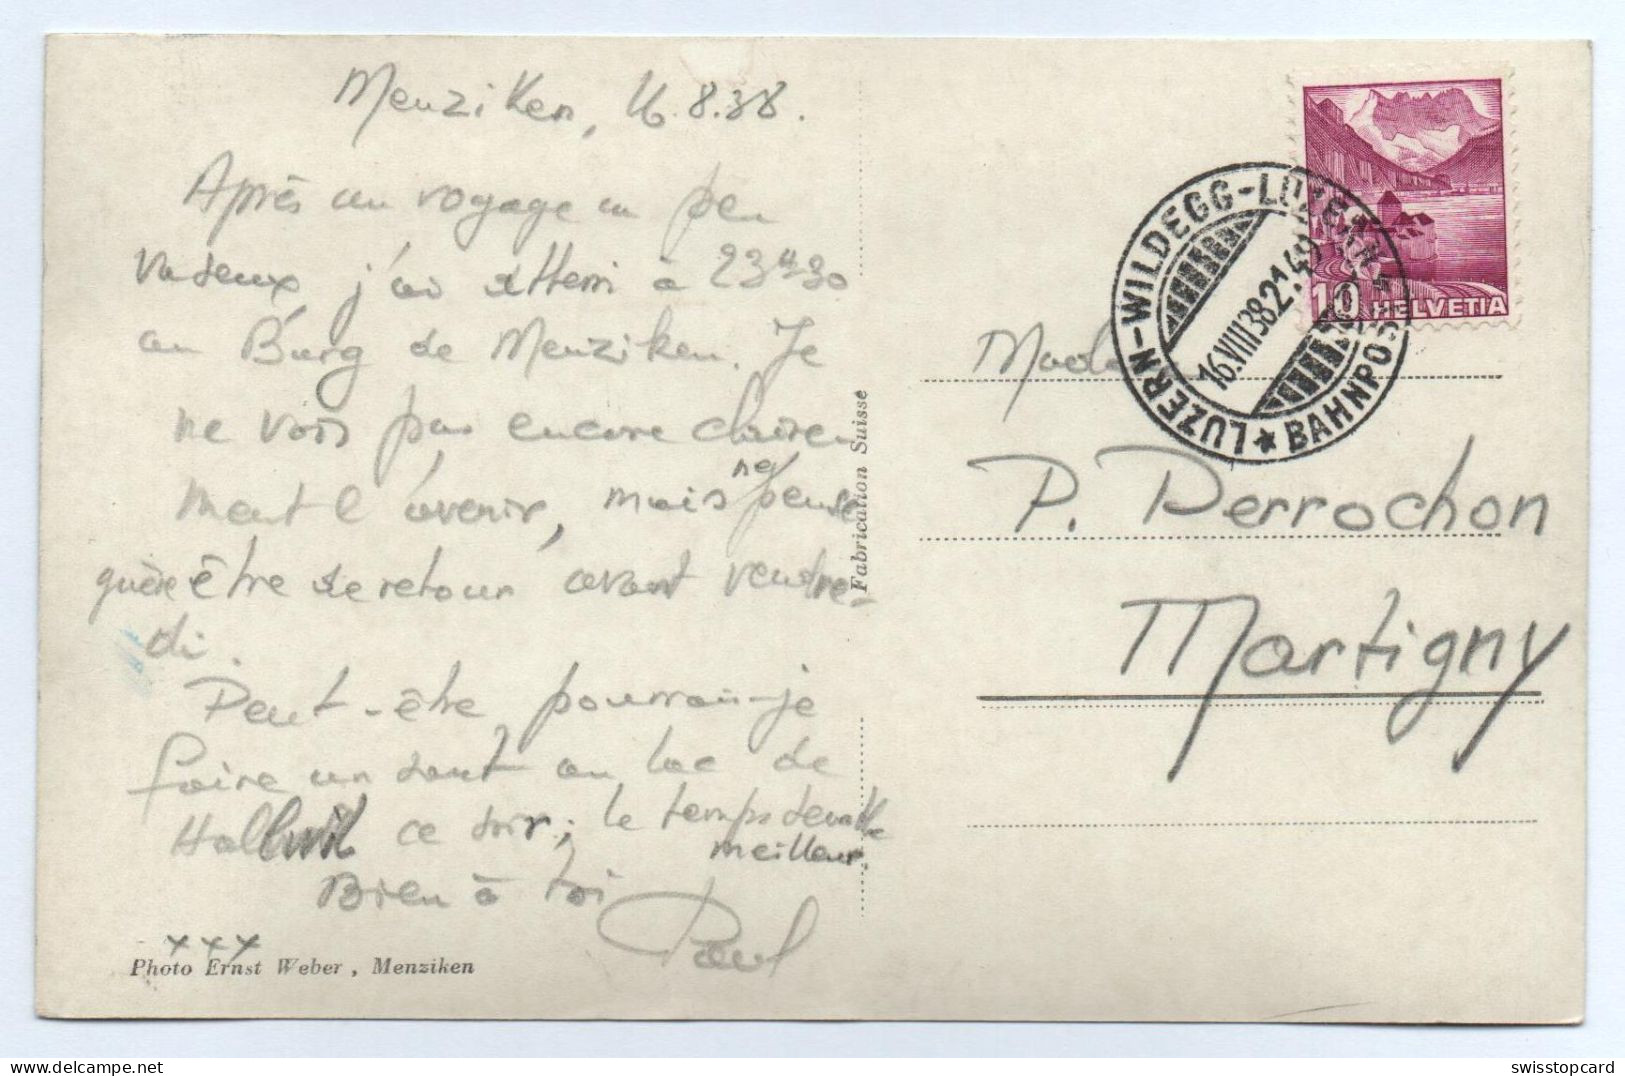 Menziken, 16.8.38.
Après un voyage un peu
vaseux j'ai atterri à 23h30
au Burg de Menziken. Je
ne vois pas encore claire-
ment l'avenir, mais ne pense
guère être de retour avant vendre-
di.
Peut-être pourrai-je
faire un saut au lac de
Hallwil ce soir; le temps devient
meilleur.
Bien à toi Paul
xxx
Photo Ernst Weber, Menziken
Fabrication Suisse
10 HELVETIA
LUZERN-WILDEGG-LUZERN
16.VIII.38.21.49
★ BAHNPOST
P. Perrochon
Martigny
swisstopcard